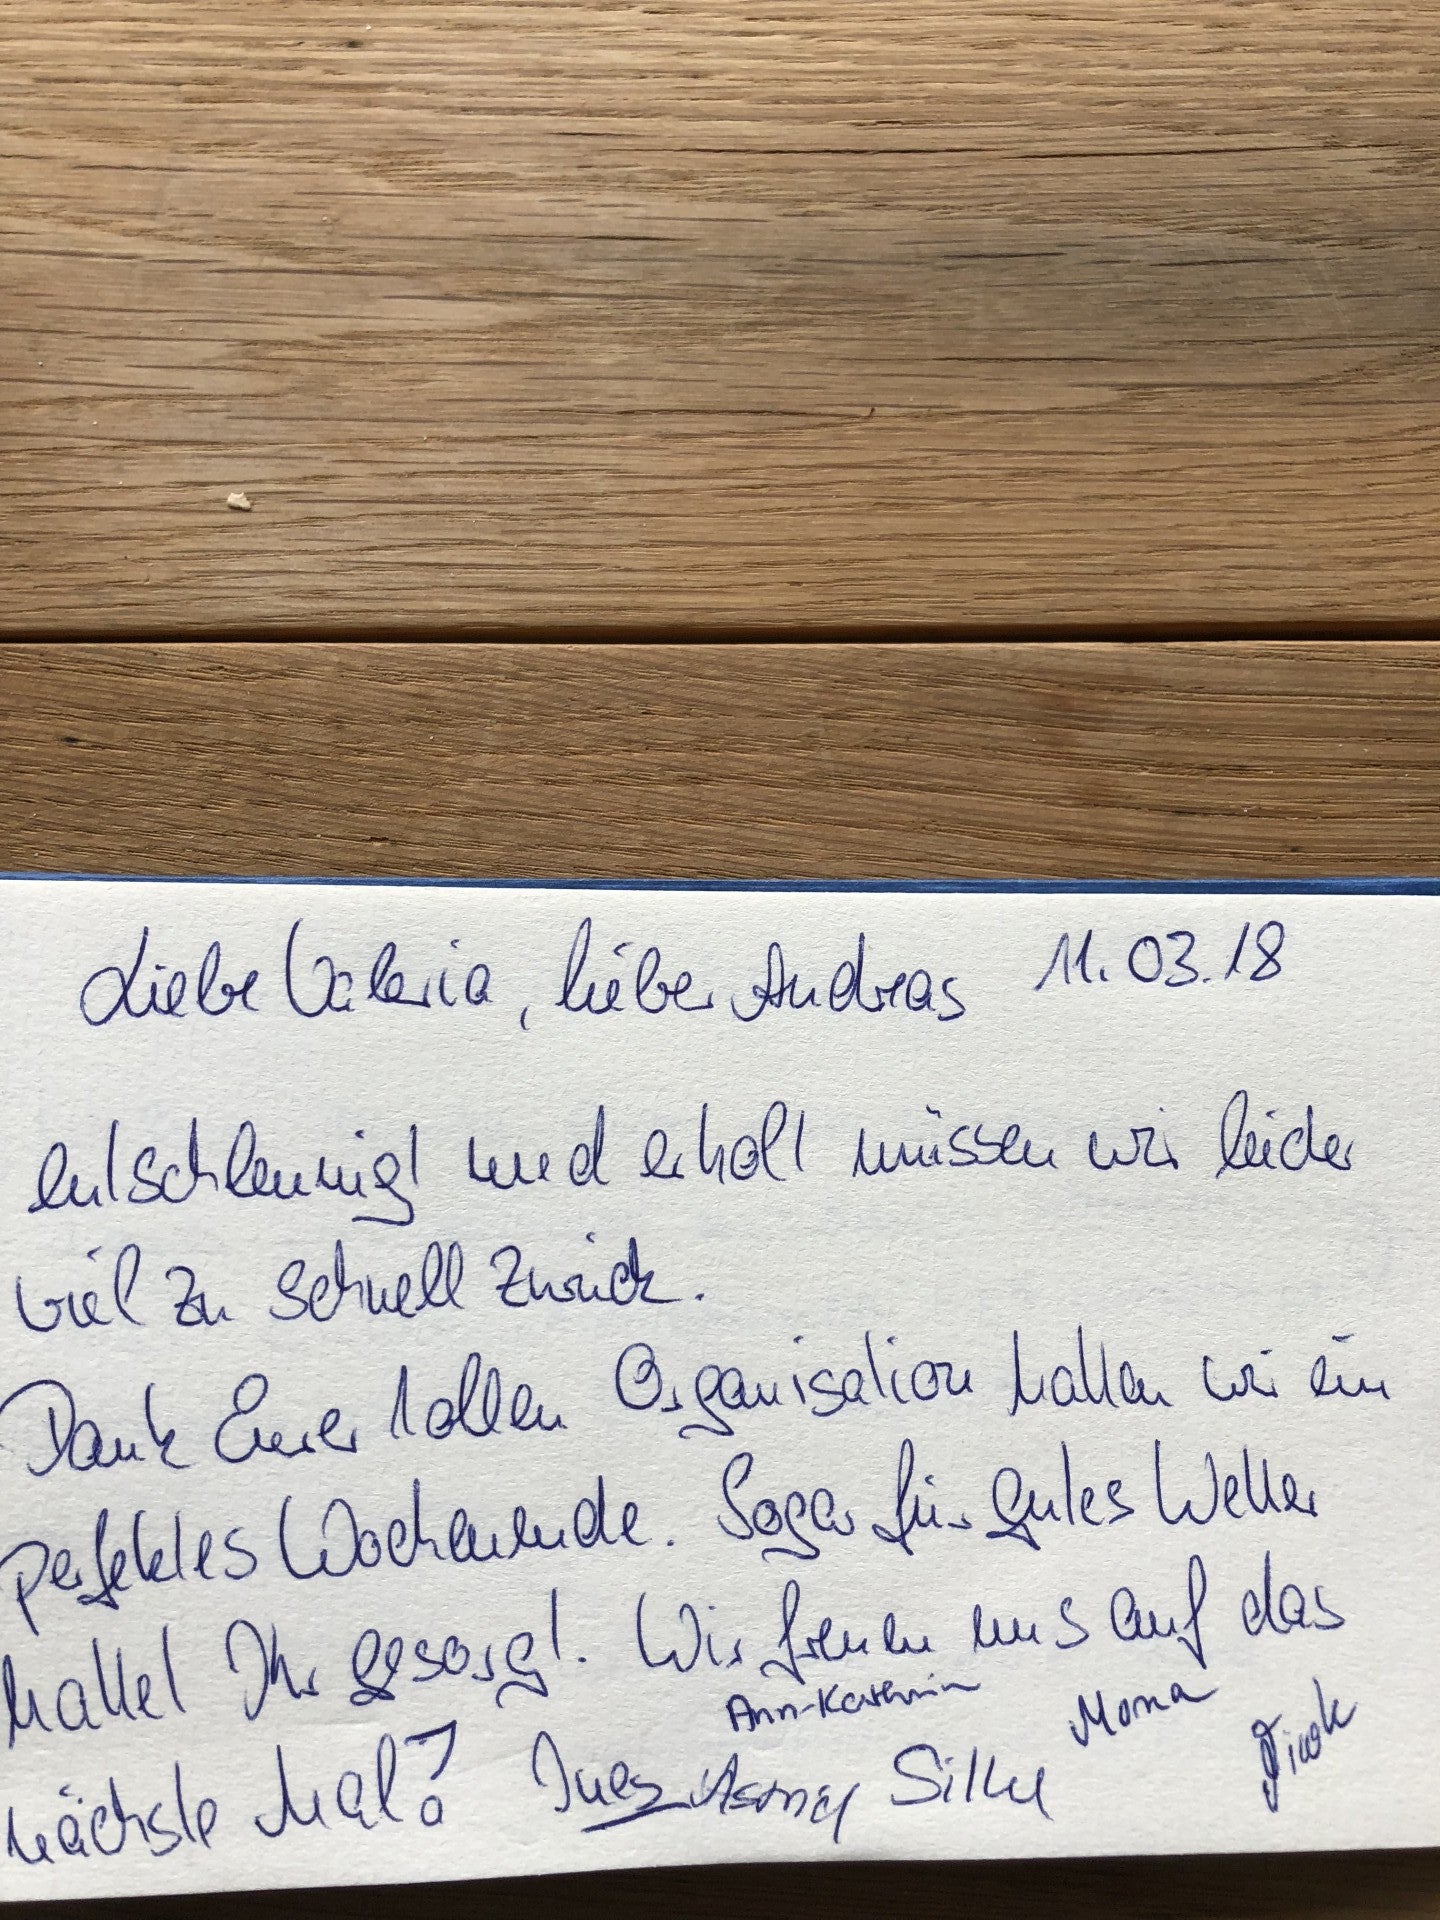 Liebe Valeria, lieber Andreas 11.03.18
entschleunigt und erholt müssen wir leider
viel zu schnell zurück.
Dank Eurer tollen Organisation hatten wir ein
perfektes Wochenende. Sogar für gutes Wetter
hattet Ihr gesorgt. Wir freuen uns auf das
Ann-Kathrin Mona
nächste Mal! Ines Silke